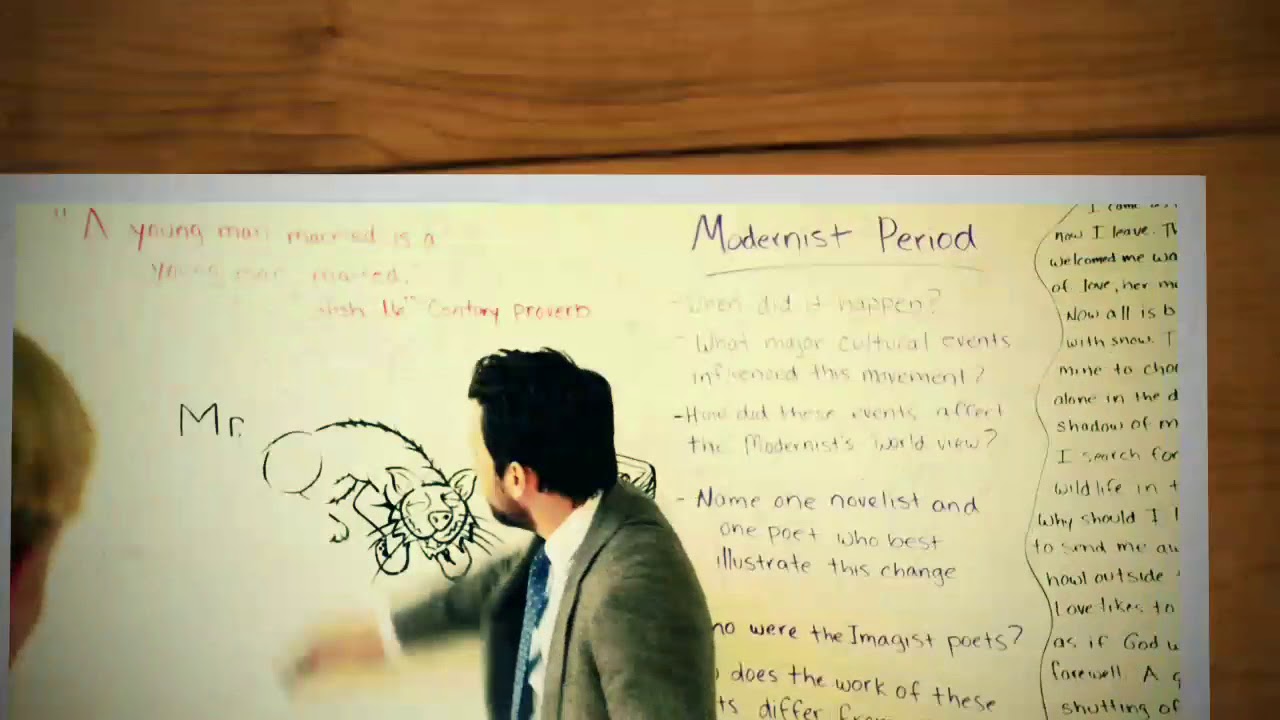 "A young man married is a
young man marred."
16th Contury proverb
Mr.
Modernist Period
- When did it happen?
- What major cultural events
influenced this movement?
- How did these events affect
the Modernist's world view?
- Name one novelist and
one poet who best
illustrate this change
were the Imagist poets?
does the work of these
differ
I came
now I leave.
welcomed me
of love, her
Now all is
with snow.
mine to
alone in the
shadow of
I search for
wildlife in
Why should I
to send me
howl outside
Love likes to
as if God
farewell. A
shutting of